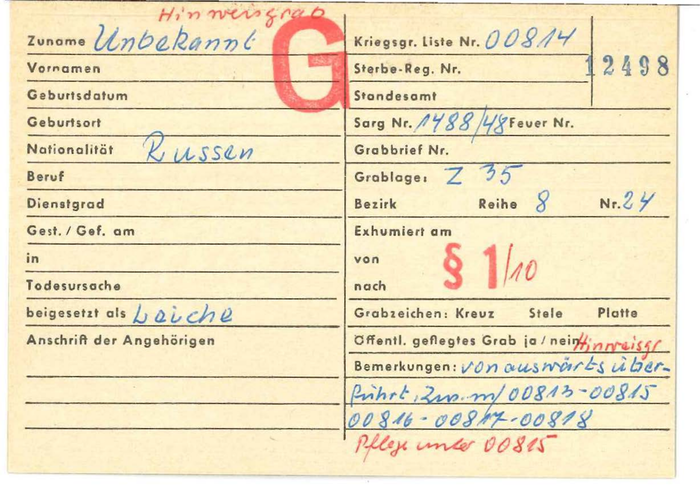 Hinweisgrab
G
Zuname Unbekannt
Vornamen
Geburtsdatum
Geburtsort
Nationalität Russen
Beruf
Dienstgrad
Gest. / Gef. am
in
Todesursache
beigesetzt als Leiche
Anschrift der Angehörigen
Kriegsgr. Liste Nr. 00814
12498
Sterbe-Reg. Nr.
Standesamt
Sarg Nr. 1488/48 Feuer Nr.
Grabbrief Nr.
Grablage: Z 35
Bezirk Reihe 8 Nr. 24
Exhumiert am
von
nach
§ 1/10
Grabzeichen: Kreuz Stele Platte
Öffentl. gepflegtes Grab ja / nein Hinweisgr
Bemerkungen: von auswärts über-
führt. Zus. m/ 00813-00815
00816-00817-00818
Pflege unter 00815